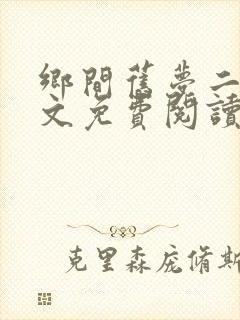 鄉間舊夢二
文免費閱讀
克里森庞脩斯